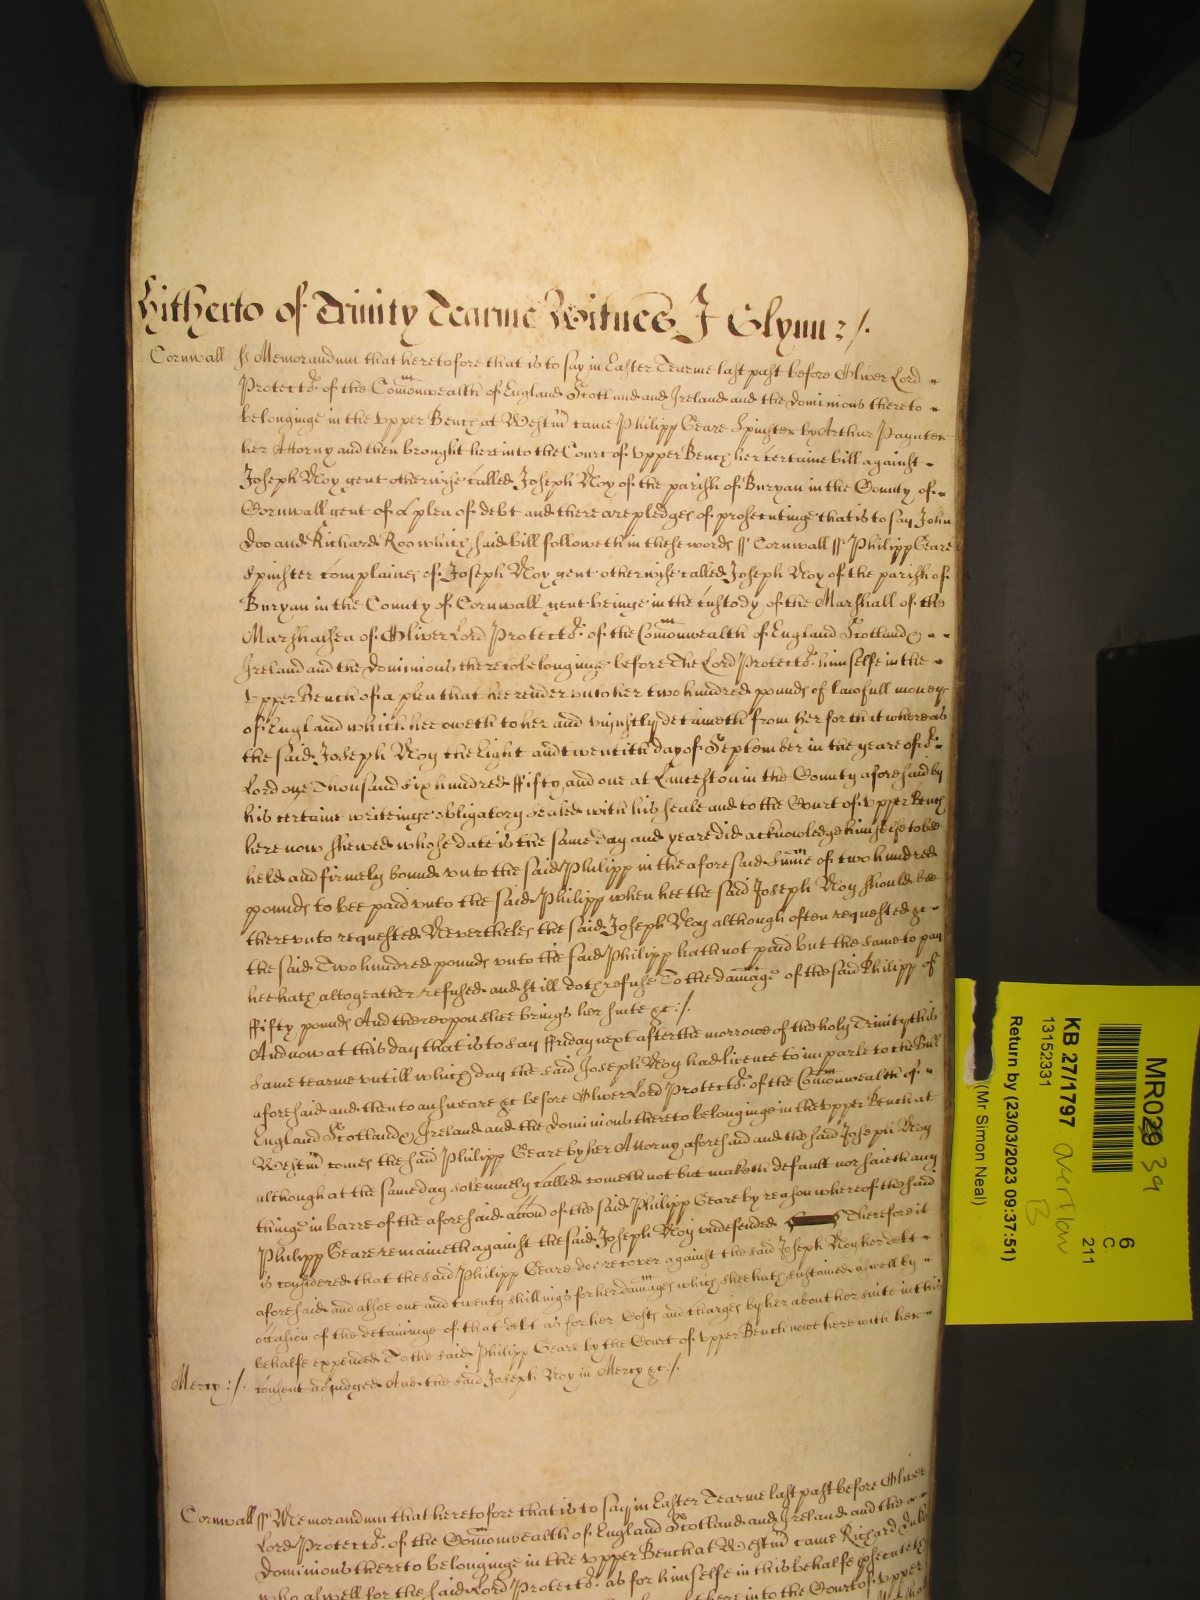 Hitherto of Trinity Tearme Witnes J Glynn :/.
Cornwall ss Memorandum that heretofore that is to say in Easter Tearme last past before Oliver Lord
Protector of the Comonwealth of England Scotland and Ireland and the dominions thereto
belonginge in the upper Bench at Westm came Philipp Geare Spinster by Arthur Paynter
her Attorny and then brought here into the Court of upper Bench her certaine bill against
Joseph Noy gent otherwise called Joseph Noy of the parish of Buryan in the County of
Cornwall gent of a plea of debt and there are pledges of prosecutinge that is to say John
Doo and Richard Roo which said bill followeth in these words ss Cornwall ss Philipp Geare
Spinster complaines of Joseph Noy gent otherwise called Joseph Noy of the parish of
Buryan in the County of Cornwall gent beinge in the custody of the Marshall of the
Marshalsea of Oliver Lord Protector of the Comonwealth of England Scotland &
Ireland and the Dominions thereto belonginge before the Lord Protector himselfe in the
upper Bench of a plea that hee render unto her two hundred pounds of lawfull money
of England which hee oweth to her and uniustly detaineth from her for that whereas
the said Joseph Noy the Eight and twentith day of September in the yeare of or
Lord one Thousand six hundred ffifty and one at Lanceston in the County aforesaid by
his certaine writeinge obligatory sealed with his seale and to the Court of upper Bench
here now shewed whose date is the same day and yeare did acknowledge himselfe to bee
held and firmely bound unto the said Philipp in the aforesaid sume of two hundred
pounds to bee paid unto the said Philipp when hee the said Joseph Noy should bee
thereunto requested Nevertheles the said Joseph Noy although often requested &c
the said Two hundred pounds unto the said Philipp hath not paid but the same to pay
hee hath altogeather refused and still doth refuse To the damage of the said Philipp of
ffifty pounds And thereuppon shee brings her suite &c :/.
And now at this day that is to say ffriday next after the morrowe of the holy Trinity this
same tearme untill which day the said Joseph Noy had licence to imparle to the Bill
aforesaid and then to answeare &c before Oliver Lord Protector of the Comonwealth of
England Scotland & Ireland and the Dominions thereto belonginge in the upper Bench at
Westm comes the said Philipp Geare by her Attorny aforesaid and the said Joseph Noy
although at the same day solemnely called cometh not but maketh default nor saieth any
thinge in barre of the aforesaid accon of the said Philipp Geare by reason whereof the said
Philipp Geare remaineth against the said Joseph Noy undefended Therefore it
is considered that the said Philipp Geare doe recover against the said Joseph Noy her debt
aforesaid and alsoe one and twenty shillings for her damages which shee hath sustained aswell by
occasion of the detaininge of that debt as for her Costs and charges by her about her suite in this
behalfe expended To the said Philipp Geare by the Court of upper Bench nowe here with her
Mercy :/. consent adjudged And the said Joseph Noy in Mercy &c :/.
Cornwall ss Memorandum that heretofore that is to say in Easter Tearme last past before Oliver
Lord Protector of the Comonwealth of England Scotland and Ireland and the
Dominions thereto belonginge in the upper Bench at Westm came Richard
who aswell for the said Lord Protector as for himselfe in this behalfe prosecuteth
here into the Court of upper
MR029 39
6
C.
211
KB 27/1797 overflow
B
13152331
Return by (23/03/2023 09:37:51)
(Mr Simon Neal)